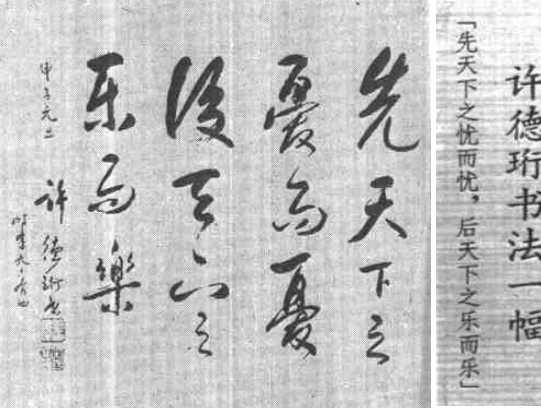 许德珩书法一幅
「先天下之忧而忧，后天下之乐而乐」
先天下之
憂而憂
後天下之
乐而樂
甲子元旦
许德珩书
时年九十有四